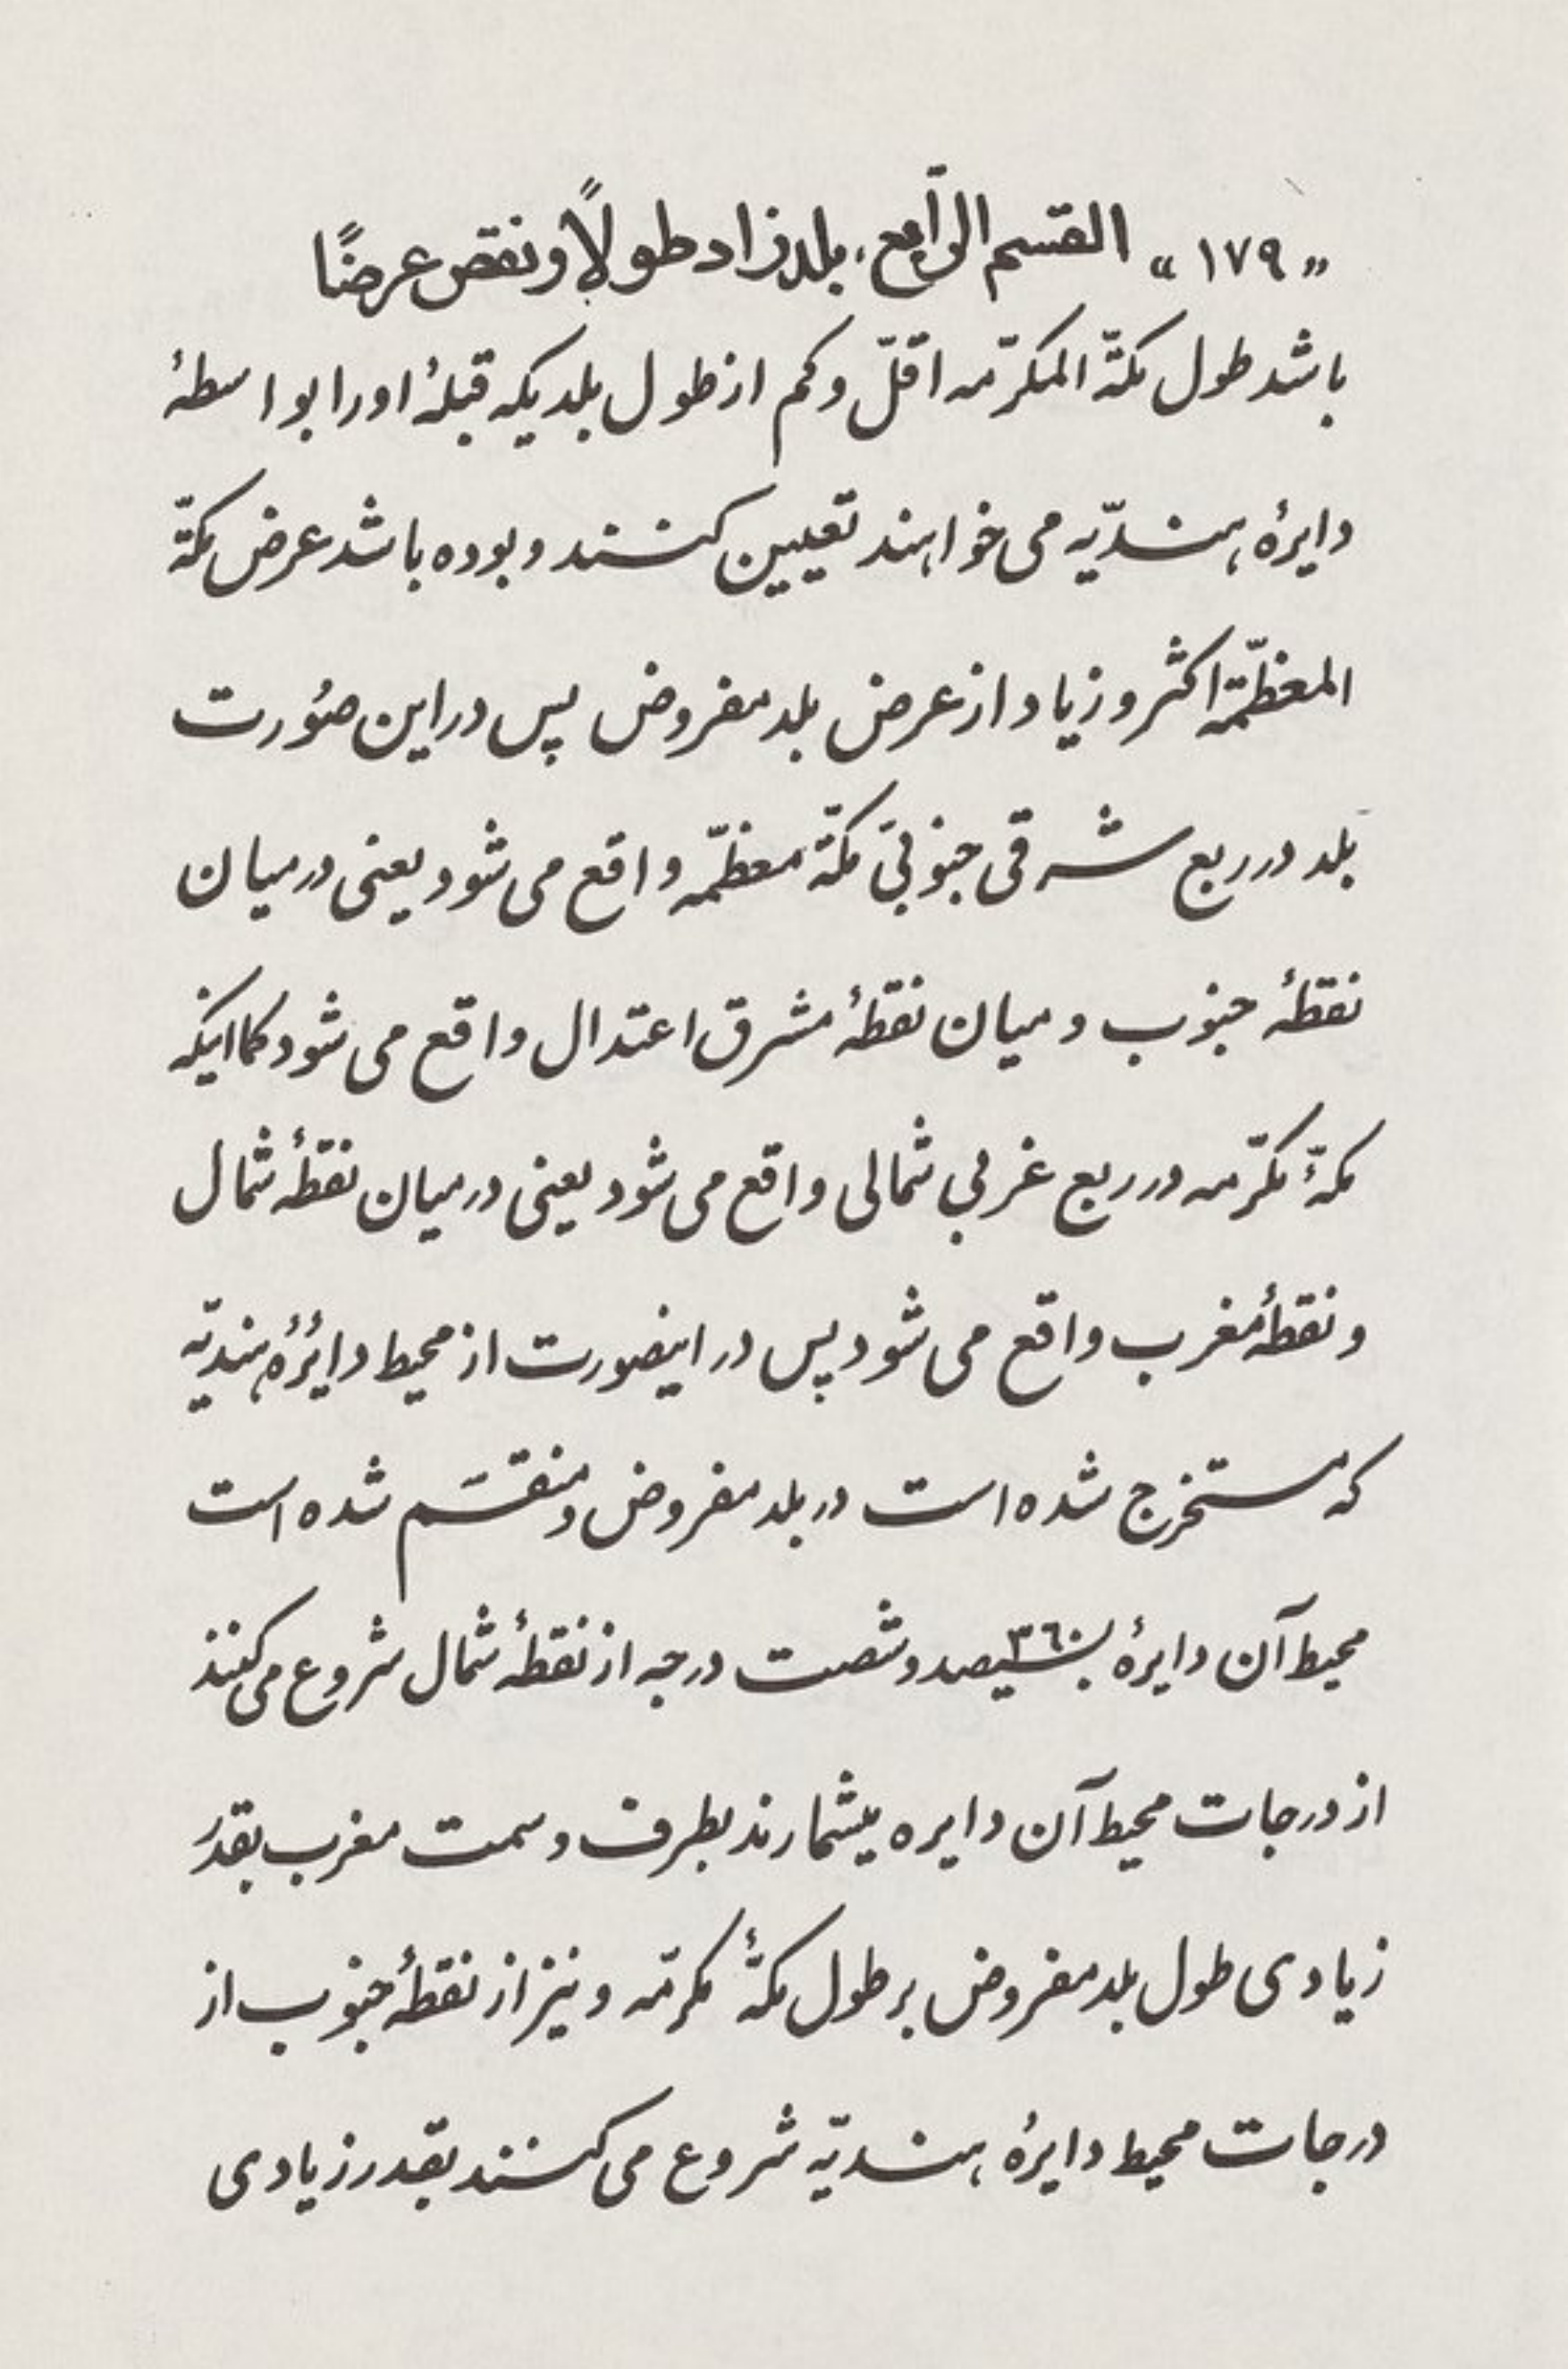 «۱۷۹» القسم الرّابع، بلد زاد طولاً ونقص عرضًا
باشد طول مکّة المکرّمه اقلّ وکم از طول بلدیکه قبلهٔ اورا بواسطهٔ
دایرهٔ هندیّه می خواهند تعیین کنند وبوده باشد عرض مکّة
المعظّمة اکثر وزیاد از عرض بلد مفروض پس دراین صورت
بلد درربع شرقی جنوبیّ مکّهٔ معظّمه واقع می شود یعنی درمیان
نقطهٔ جنوب ومیان نقطهٔ مشرق اعتدال واقع می شود کمااینکه
مکّهٔ مکرّمه درربع غربی شمالی واقع می شود یعنی درمیان نقطهٔ شمال
ونقطهٔ مغرب واقع می شود پس دراینصورت از محیط دایرهٔ هندیّه
که مستخرج شده است در بلد مفروض ومنقسَم شده است
محیط آن دایرهٔ ۳۶۰ بسیصد وشصت درجه از نقطهٔ شمال شروع می کنند
از درجات محیط آن دایره میشمارند بطرف وسمت مغرب بقدر
زیادی طول بلد مفروض بر طول مکّهٔ مکرّمه ونیز از نقطهٔ جنوب از
درجات محیط دایرهٔ هندیّه شروع می کنند بقدر زیادی